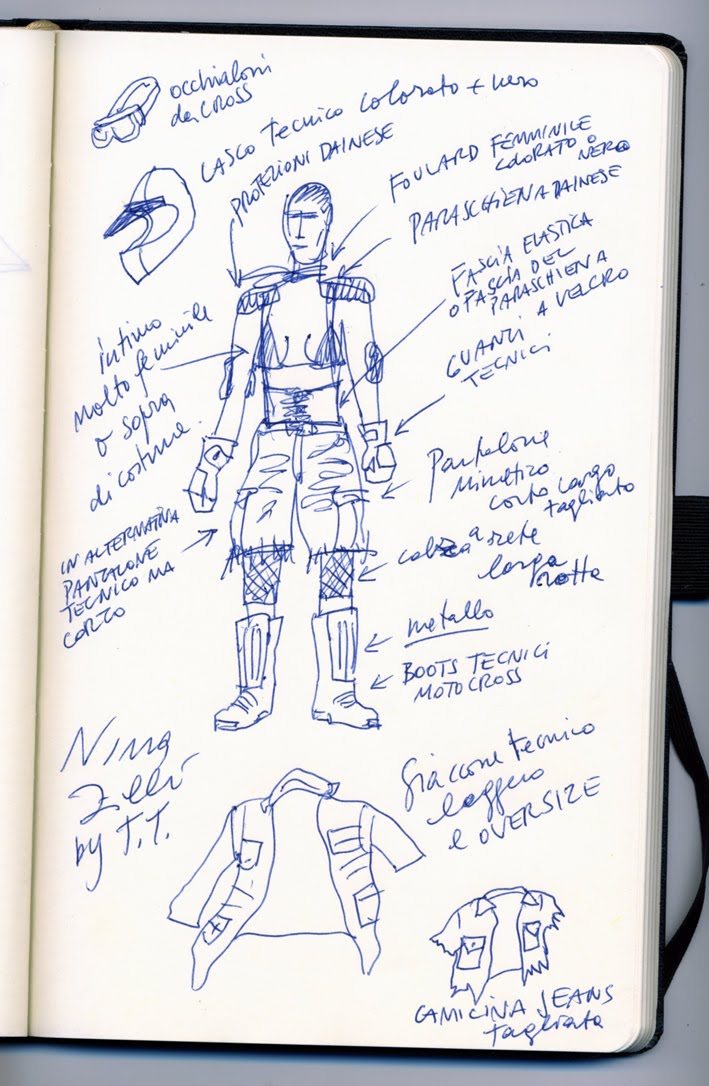 occhialoni
da CROSS
CASCO Tecnico colorato + nero
PROTEZIONI DAINESE
FOULARD FEMMINILE
COLORATO O
NERO
PARASCHIENA DAINESE
FASCIA ELASTICA
O FASCIA DEL
PARASCHIENA
A VELCRO
GUANTI
TECNICI
intimo
molto feminile
o sopra
di costume.
Pantalone
Mimetico
corto largo
tagliato
IN ALTERNATIVA
PANTALONE
TECNICO MA
CORTO
calza a rete
larga
rotta
metallo
BOOTS TECNICI
MOTOCROSS
Nina
Zilli
by T.T.
Giaccone tecnico
leggero
e OVERSIZE
CAMICINA JEANS
tagliata